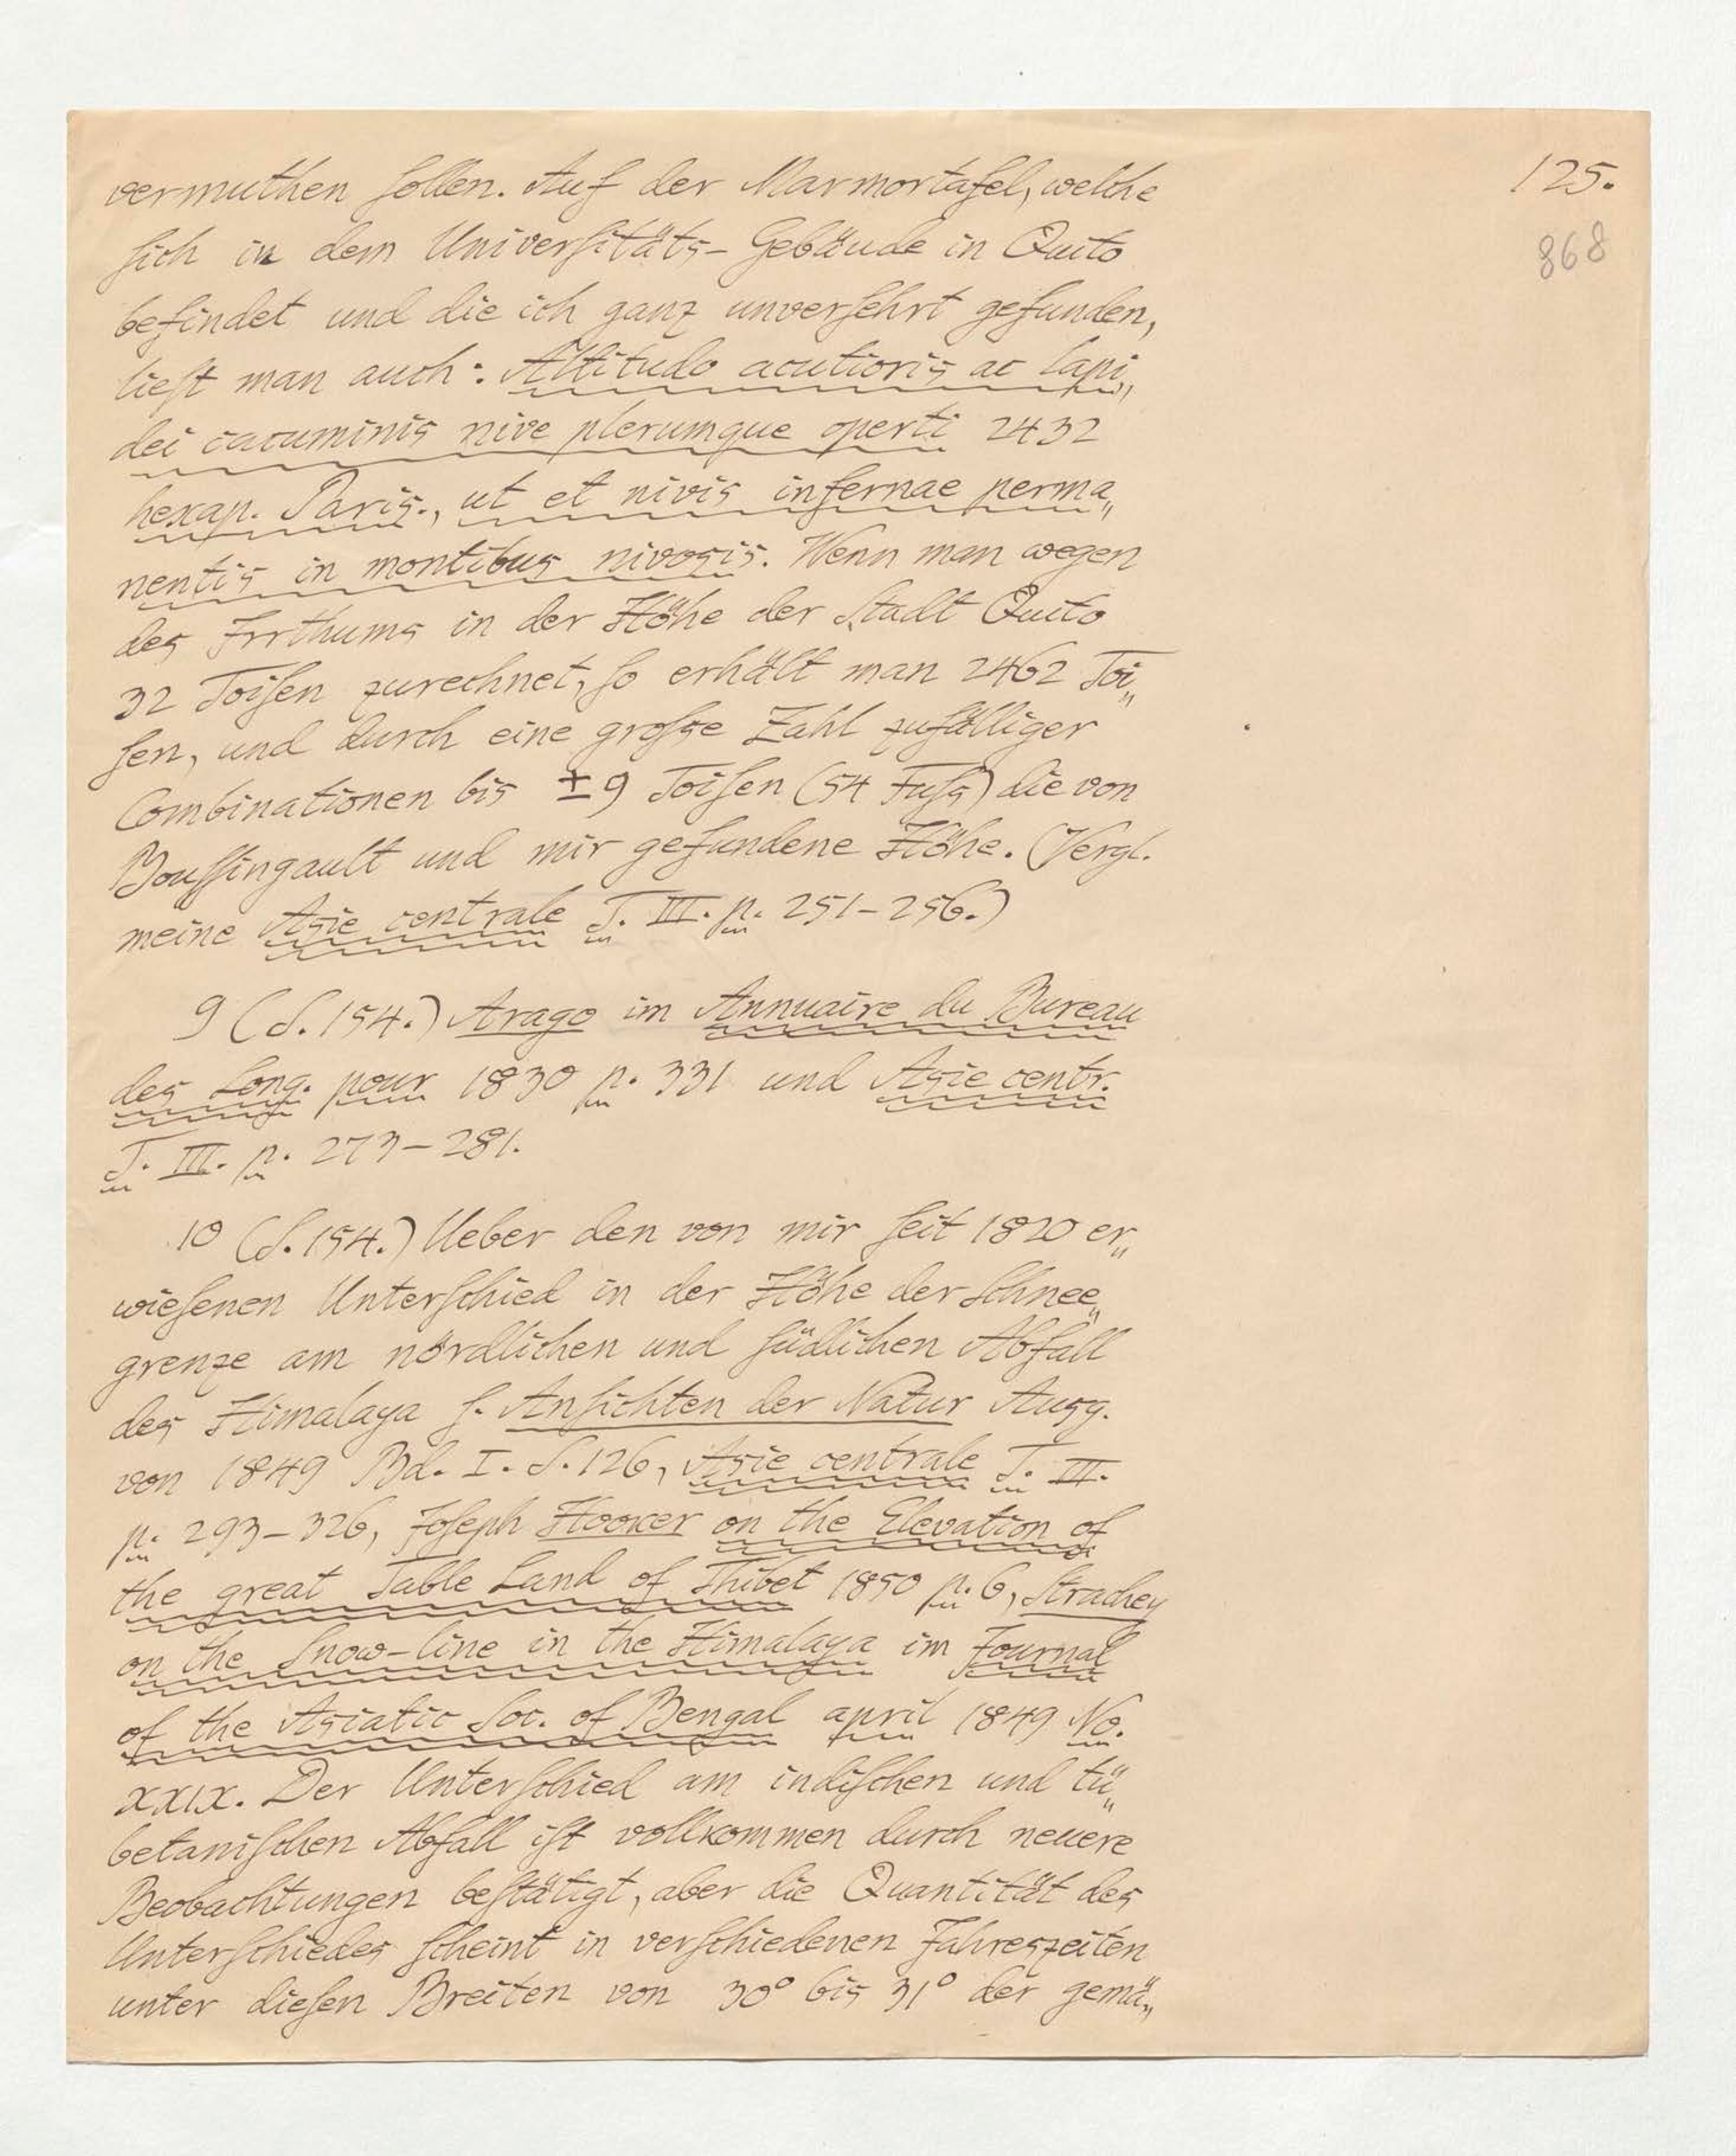 125.
868
vermuthen ſollen. Auf der Marmortafel, welche
ſich in dem Univerſitäts-Gebäude in Quito
befindet und die ich ganz unverſehrt gefunden,
lieſt man auch: Altitudo acutioris ac lapi„
dei cacuminis nive plerumque operti 2432
hexap. Paris., ut et nivis infernae perma„
nentis in montibus nivosis. Wenn man wegen
des Irrthums in der Höhe der Stadt Quito
32 Toiſen zurechnet, ſo erhält man 2462 Toi„
ſen, und durch eine groſse Zahl zufälliger
Combinationen bis ±9 Toiſen (54 Fuſs) die von
Bouſſingault und mir gefundene Höhe. (Vergl.
meine Asie centrale T. III. p. 251-256.)
9 (S. 154.) Arago im Annuaire du Bureau
des Long. pour 1830 p. 331 und Asie centr.
T. III. p. 273-281.
10 (S. 154.) Ueber den von mir ſeit 1820 er„
wieſenen Unterſchied in der Höhe der Schnee„
grenze am nördlichen und ſüdlichen Abfall
des Himalaya ſ. Anſichten der Natur Ausg.
von 1849 Bd. I. S. 126, Asie centrale T. III.
p. 293-326, Joſeph Hooker on the Elevation of
the great Table Land of Thibet 1850 p. 6, Strachey
on the Snow-line in the Himalaya im Journal
of the Asiatic Soc. of Bengal april 1849 No.
XXIX. Der Unterſchied am indiſchen und tü„
betaniſchen Abfall iſt vollkommen durch neuere
Beobachtungen beſtätigt, aber die Quantität des
Unterſchiedes ſcheint in verſchiedenen Jahreszeiten
unter dieſen Breiten von 30° bis 31° der gemä„